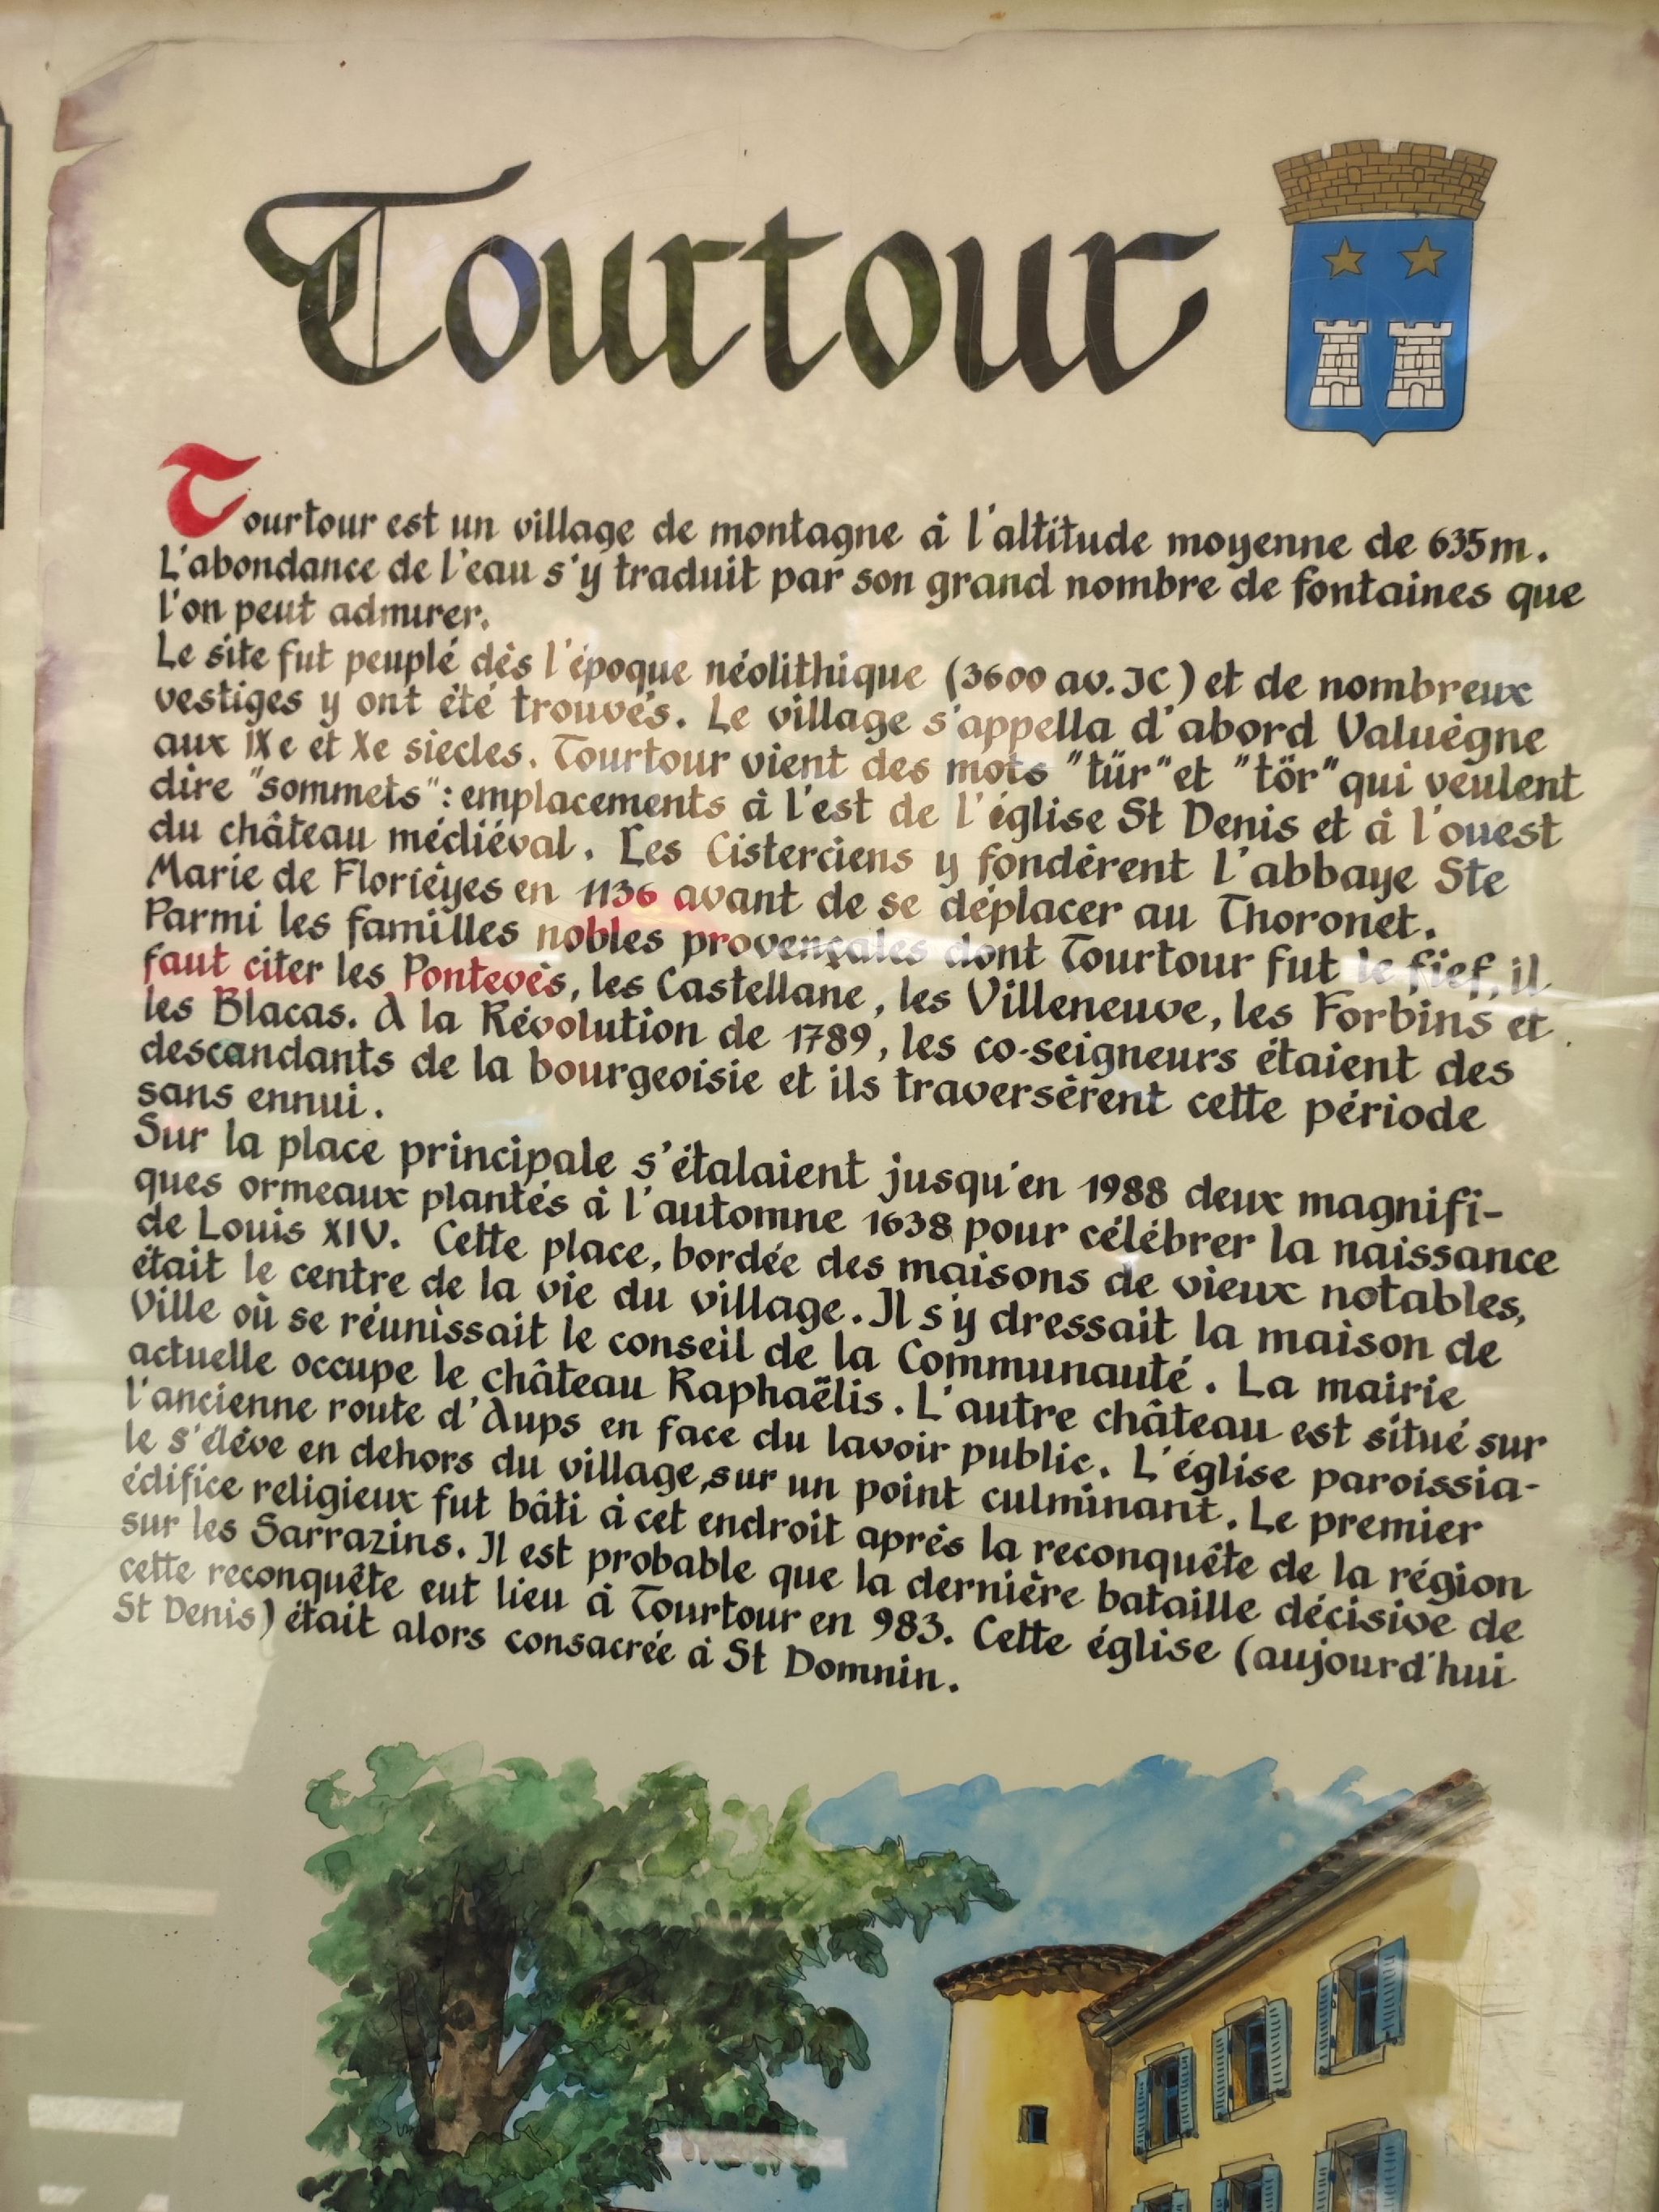 Tourtour
Tourtour est un village de montagne à l'altitude moyenne de 635m.
L'abondance de l'eau s'y traduit par son grand nombre de fontaines que
l'on peut admirer.
Le site fut peuplé dès l'époque néolithique (3600 av. JC) et de nombreux
vestiges y ont été trouvés. Le village s'appella d'abord Valuègne
aux IXe et Xe siecles. Tourtour vient des mots "tür" et "tör" qui veulent
dire "sommets" : emplacements à l'est de l'église St Denis et à l'ouest
du château médiéval. Les Cisterciens y fondèrent l'abbaye Ste
Marie de Florièyes en 1136 avant de se déplacer au Thoronet.
Parmi les familles nobles provençales dont Tourtour fut le fief, il
faut citer les Pontevès, les Castellane, les Villeneuve, les Forbins et
les Blacas. A la Révolution de 1789, les co-seigneurs étaient des
descandants de la bourgeoisie et ils traversèrent cette période
sans ennui.
Sur la place principale s'étalaient jusqu'en 1988 deux magnifi-
ques ormeaux plantés à l'automne 1638 pour célébrer la naissance
de Louis XIV. Cette place, bordée des maisons de vieux notables,
était le centre de la vie du village. Il s'y dressait la maison de
Ville où se réunissait le conseil de la Communauté. La mairie
actuelle occupe le château Raphaëlis. L'autre château est situé sur
l'ancienne route d'Aups en face du lavoir public. L'église paroissia-
le s'élève en dehors du village, sur un point culminant. Le premier
édifice religieux fut bâti à cet endroit après la reconquête de la région
sur les Sarrazins. Il est probable que la dernière bataille décisive de
cette reconquête eut lieu à Tourtour en 983. Cette église (aujourd'hui
St Denis) était alors consacrée à St Domnin.